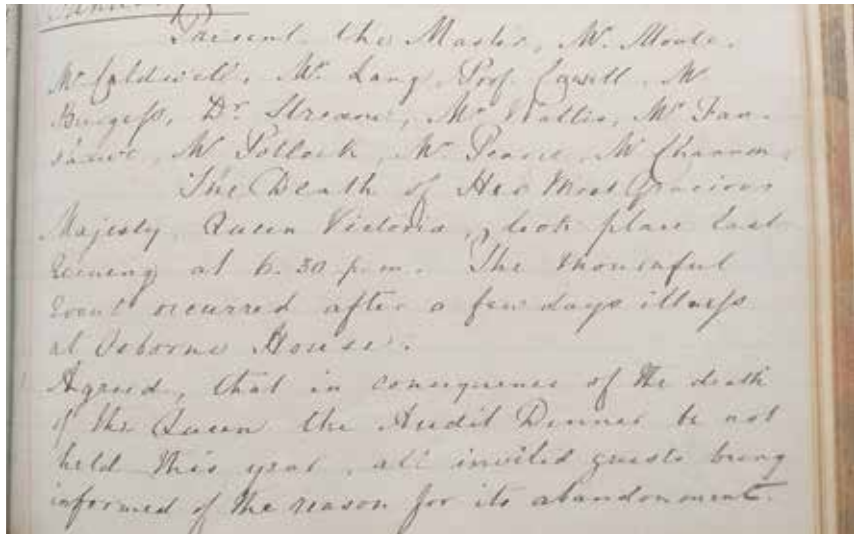 Present the Master, Mr. Moule,
Mr Caldwell, Mr Lang, Prof. Cowell, Mr
Burgess, Dr. Streane, Mr Wallis, Mr Fan-
shawe, Mr Pollock, Mr Pearce, Mr Channon.
The Death of Her Most Gracious
Majesty, Queen Victoria, took place last
Evening at 6.30 p.m. The mournful
Event occurred after a few days illness
at Osborne House.
Agreed, that in consequence of the death
of the Queen the Audit Dinner be not
held this year, all invited guests being
informed of the reason for its abandonment.